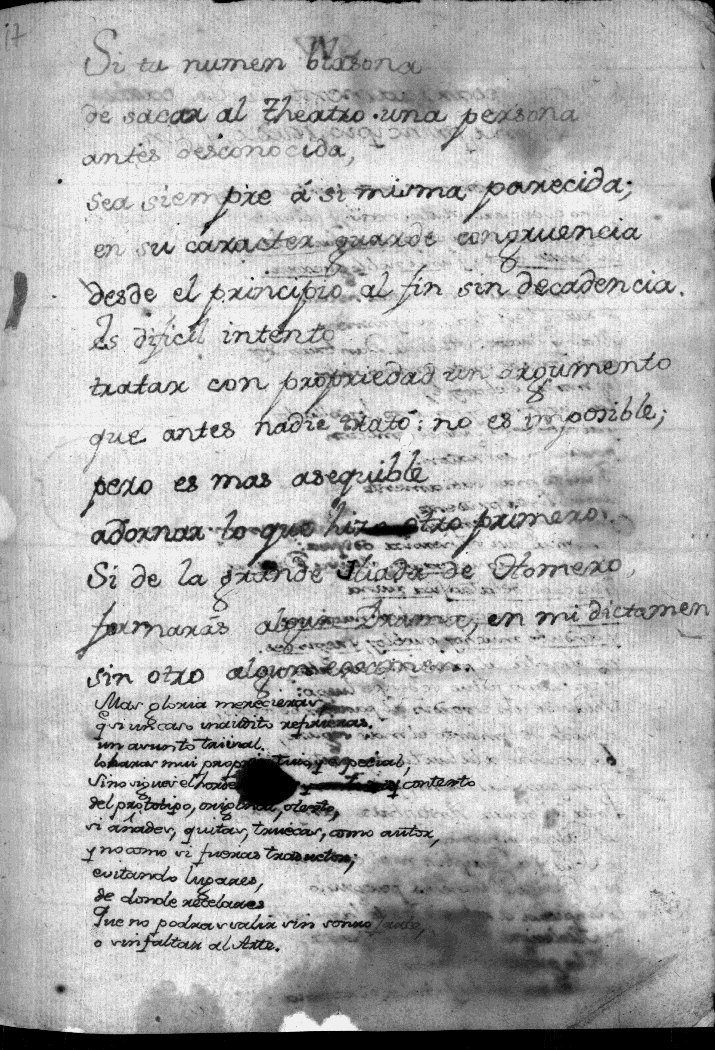 17
Si tu numen blasona
de sacar al Theatro una persona
antes desconocida,
sea siempre á si misma parecida;
en su caracter guarde congruencia
desde el principio al fin sin decadencia.
És dificil intento
tratar con propriedad un argumento
que antes nadie trató: no es imposible;
pero es mas asequible
adornar lo que hizo otro primero.
Si de la grande Iliada de Homero,
formarás algun Drama, en mi dictamen
sin otro algun
Mas gloria merecieras,
q si un caso inaudito refirieras.
un asunto trivial.
lo haras mui proprio tuio y especial,
Sino sigues el y contexto
del prototipo, original, o texto,
si añades, quitas, truecas, como autor,
y no como si fueras traductor;
evitando lugares,
de donde recelares
Que no podras salir sin sonrojarte,
o sin faltar al Arte.